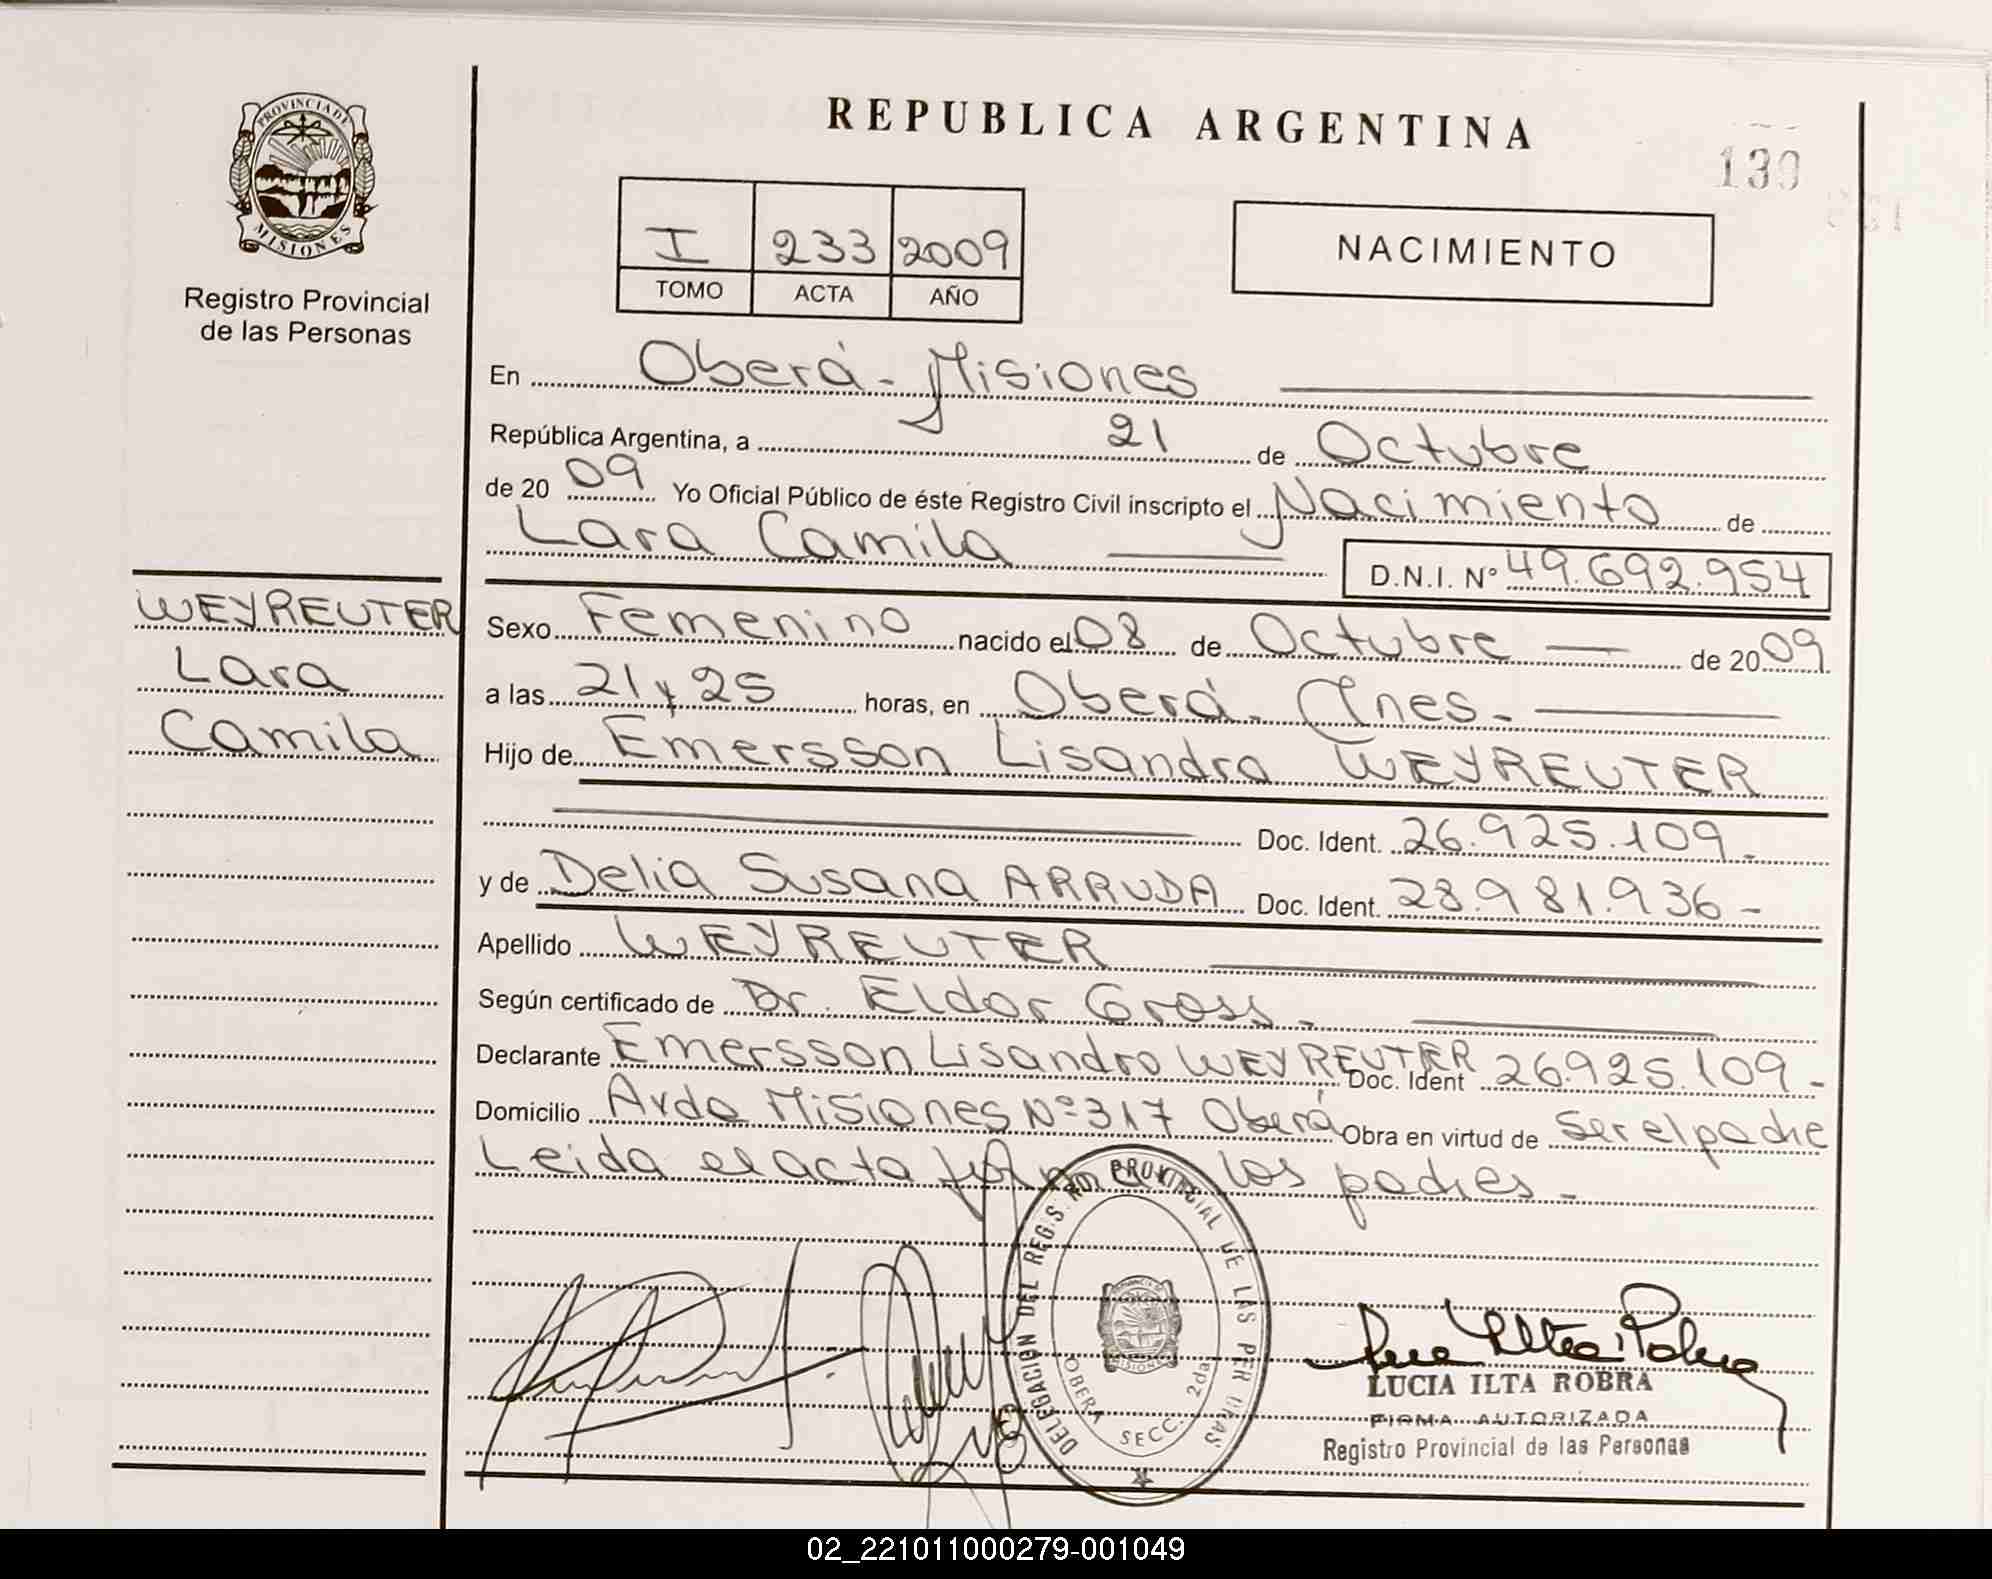 REPUBLICA ARGENTINA
139
PROVINCIA DE MISIONES
Registro Provincial
de las Personas
I 233 2009
TOMO ACTA AÑO
NACIMIENTO
En Oberá - Misiones
República Argentina, a 21 de Octubre
de 20 09 Yo Oficial Público de éste Registro Civil inscripto el Nacimiento de
Lara Camila D.N.I. N° 49.692.954
WEYREUTER
Lara
Camila
Sexo Femenino nacido el 08 de Octubre de 20 09
a las 21 y 25 horas, en Oberá - Mnes.
Hijo de Emersson Lisandro WEYREUTER
Doc. Ident. 26.925.109.-
y de Delia Susana ARRUDA Doc. Ident. 28.981.936-
Apellido WEYREUTER
Según certificado de Dr. Eldor Gross.
Declarante Emersson Lisandro WEYREUTER Doc. Ident 26.925.109-
Domicilio Avda Misiones N° 317 Oberá Obra en virtud de ser el padre
Leida el acta los padres.-
DELEGACION DEL REG. PROVINCIAL DE LAS PERSONAS
MISIONES
OBERA SECC. 2da
LUCIA ILTA ROBRA
FIRMA AUTORIZADA
Registro Provincial de las Personas
02_221011000279-001049